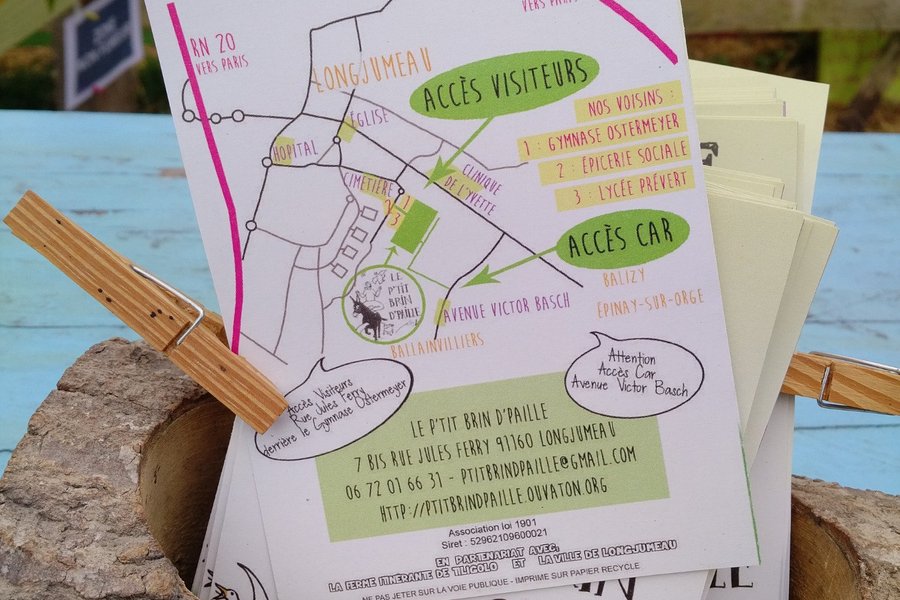 VERS PARIS
RN 20
VERS PARIS
LONGJUMEAU
ACCÈS VISITEURS
NOS VOISINS :
1 : GYMNASE OSTERMEYER
2 : ÉPICERIE SOCIALE
3 : LYCÉE PRÉVERT
ÉGLISE
HOPITAL
CIMETIÈRE
1
2
3
CLINIQUE
DE L'YVETTE
ACCÈS CAR
LE
P'TIT
BRIN
D'PAILLE
BALIZY
EPINAY-SUR-ORGE
AVENUE VICTOR BASCH
BALLAINVILLIERS
Accès Visiteurs
Rue Jules Ferry
derrière le Gymnase Ostermeyer
Attention
Accès Car
Avenue Victor Basch
LE P'TIT BRIN D'PAILLE
7 BIS RUE JULES FERRY 91160 LONGJUMEAU
06 72 01 66 31 - PTITBRINDPAILLE@GMAIL.COM
HTTP://PTITBRINDPAILLE.OUVATON.ORG
Association loi 1901
Siret : 52962109600021
EN PARTENARIAT AVEC:
LA FERME ITINERANTE DE TILIGOLO ET LA VILLE DE LONGJUMEAU
NE PAS JETER SUR LA VOIE PUBLIQUE - IMPRIME SUR PAPIER RECYCLE